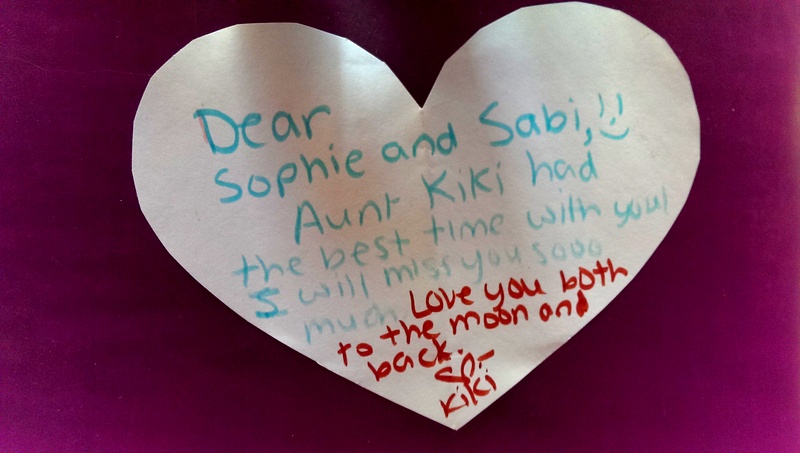 Dear
Sophie and Sabi,
Aunt Kiki had
the best time with you!
I will miss you sooo
much. Love you both
to the moon and
back.
Kiki